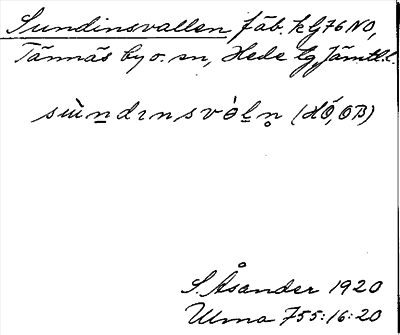 Sundinsvallen fäb. kG76NO,
Tännäs by o. sn, Hede tg, Jämtl. l.
sɯ̀ndınsvə̀ḷn̥ (HÖ, OB)
S. Åsander 1920
Ulma 755:16:20